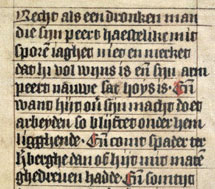 Recht als een dronken man
die sijn peert haestelike mit
sporen iaghet niet en merket
dat hi vol wijns is en̄ sijn arm
peert nauwe sat hoys is. En̄
want hijt om sijn macht doet
arbeyden so blijftet onder hem
ligghende. En̄ comt spader ter
h̾berghe dan of hijt mit maten
ghedreven hadde. En̄ somtijt